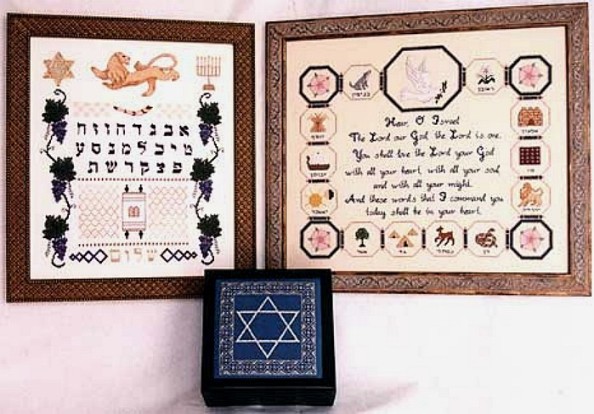 אבגדהוזח
טיכלמנסע
פצקרשת
שלום
בנימין
ראובן
Hear, O Israel
The Lord our God, the Lord is one.
You shall love the Lord your God
with all your heart, with all your soul,
and with all your might.
And these words that I command you
today shall be in your heart.